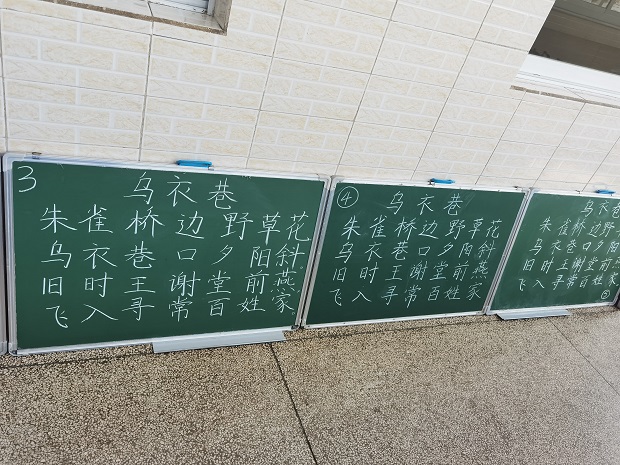 3
乌衣巷
朱雀桥边野草花
乌衣巷口夕阳斜
旧时王谢堂前燕
飞入寻常百姓家
④
乌衣巷
朱雀桥边野草花
乌衣巷口夕阳斜
旧时王谢堂前燕
飞入寻常百姓家
乌衣
朱雀桥边野
乌衣巷口夕阳
旧时王谢堂前
飞入寻常百姓